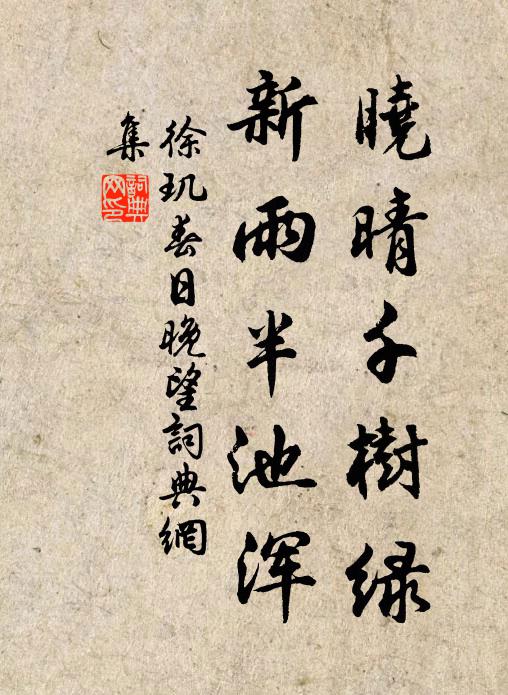 曉晴千樹緑
新雨半池渾
徐玑春日晚望詞典網
集
詞典网印